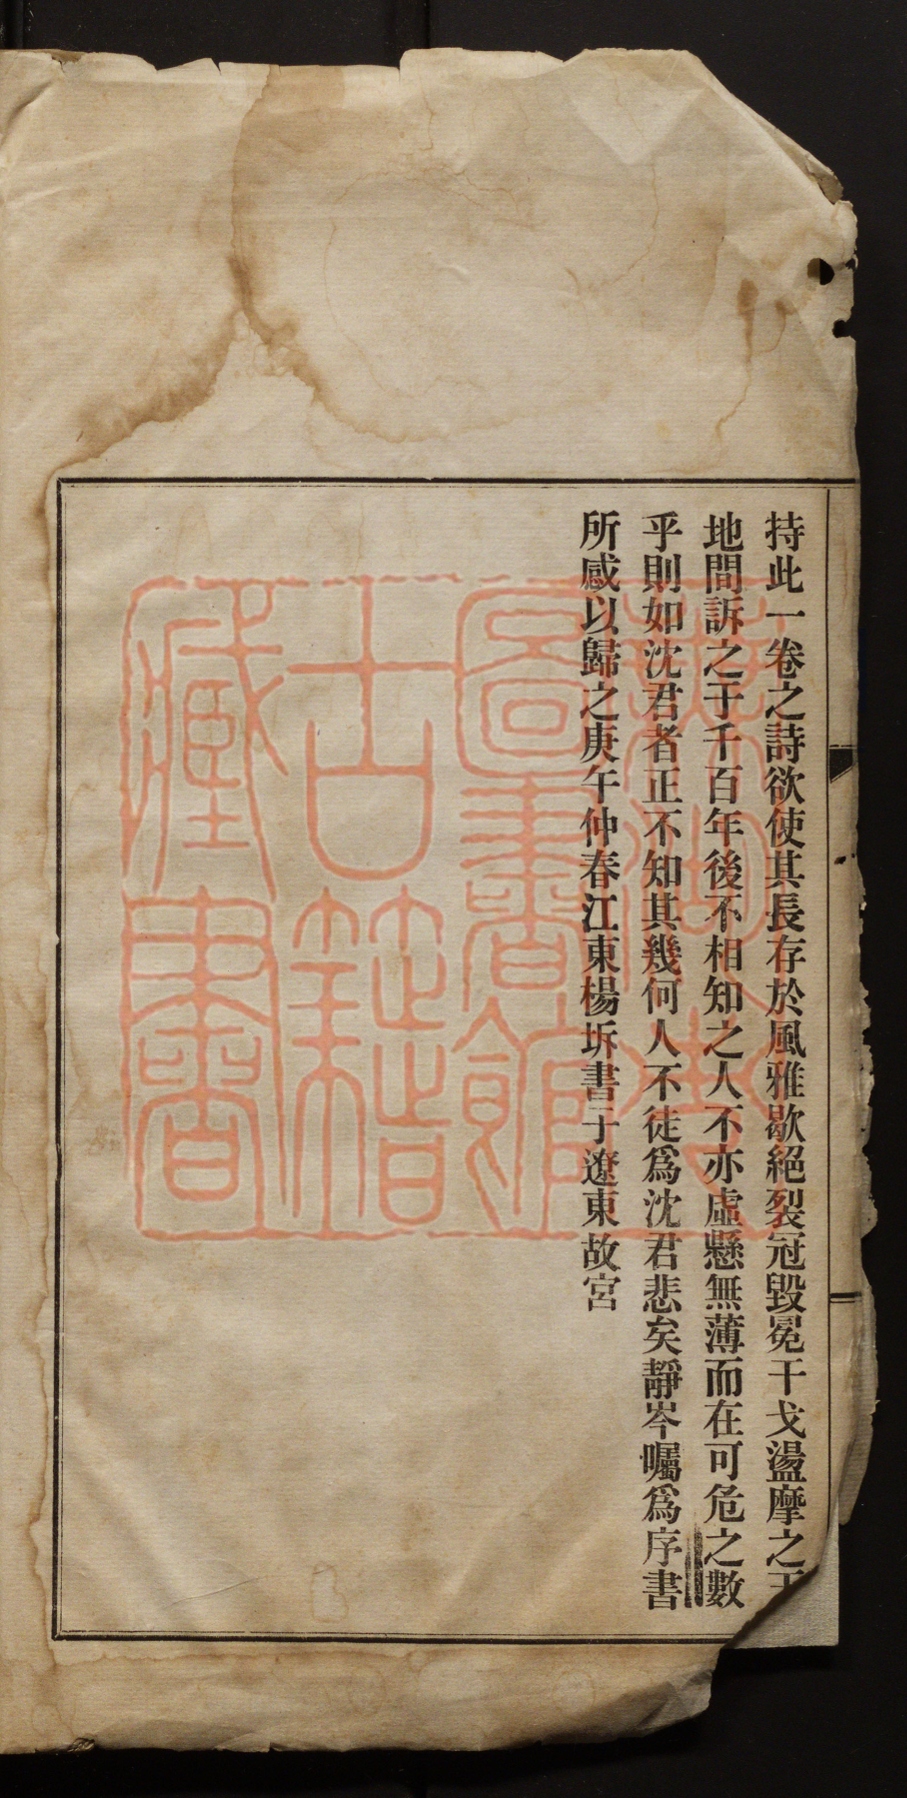 持此一卷之詩欲使其長存於風雅歇絕裂冠毀冕干戈盪摩之
地間訴之于千百年後不相知之人不亦虛懸無薄而在可危之數
乎則如沈君者正不知其幾何人不徒爲沈君悲矣靜岑囑爲序書
所感以歸之庚午仲春江東楊坼書于遼東故宮
圖書館
古籍
藏書